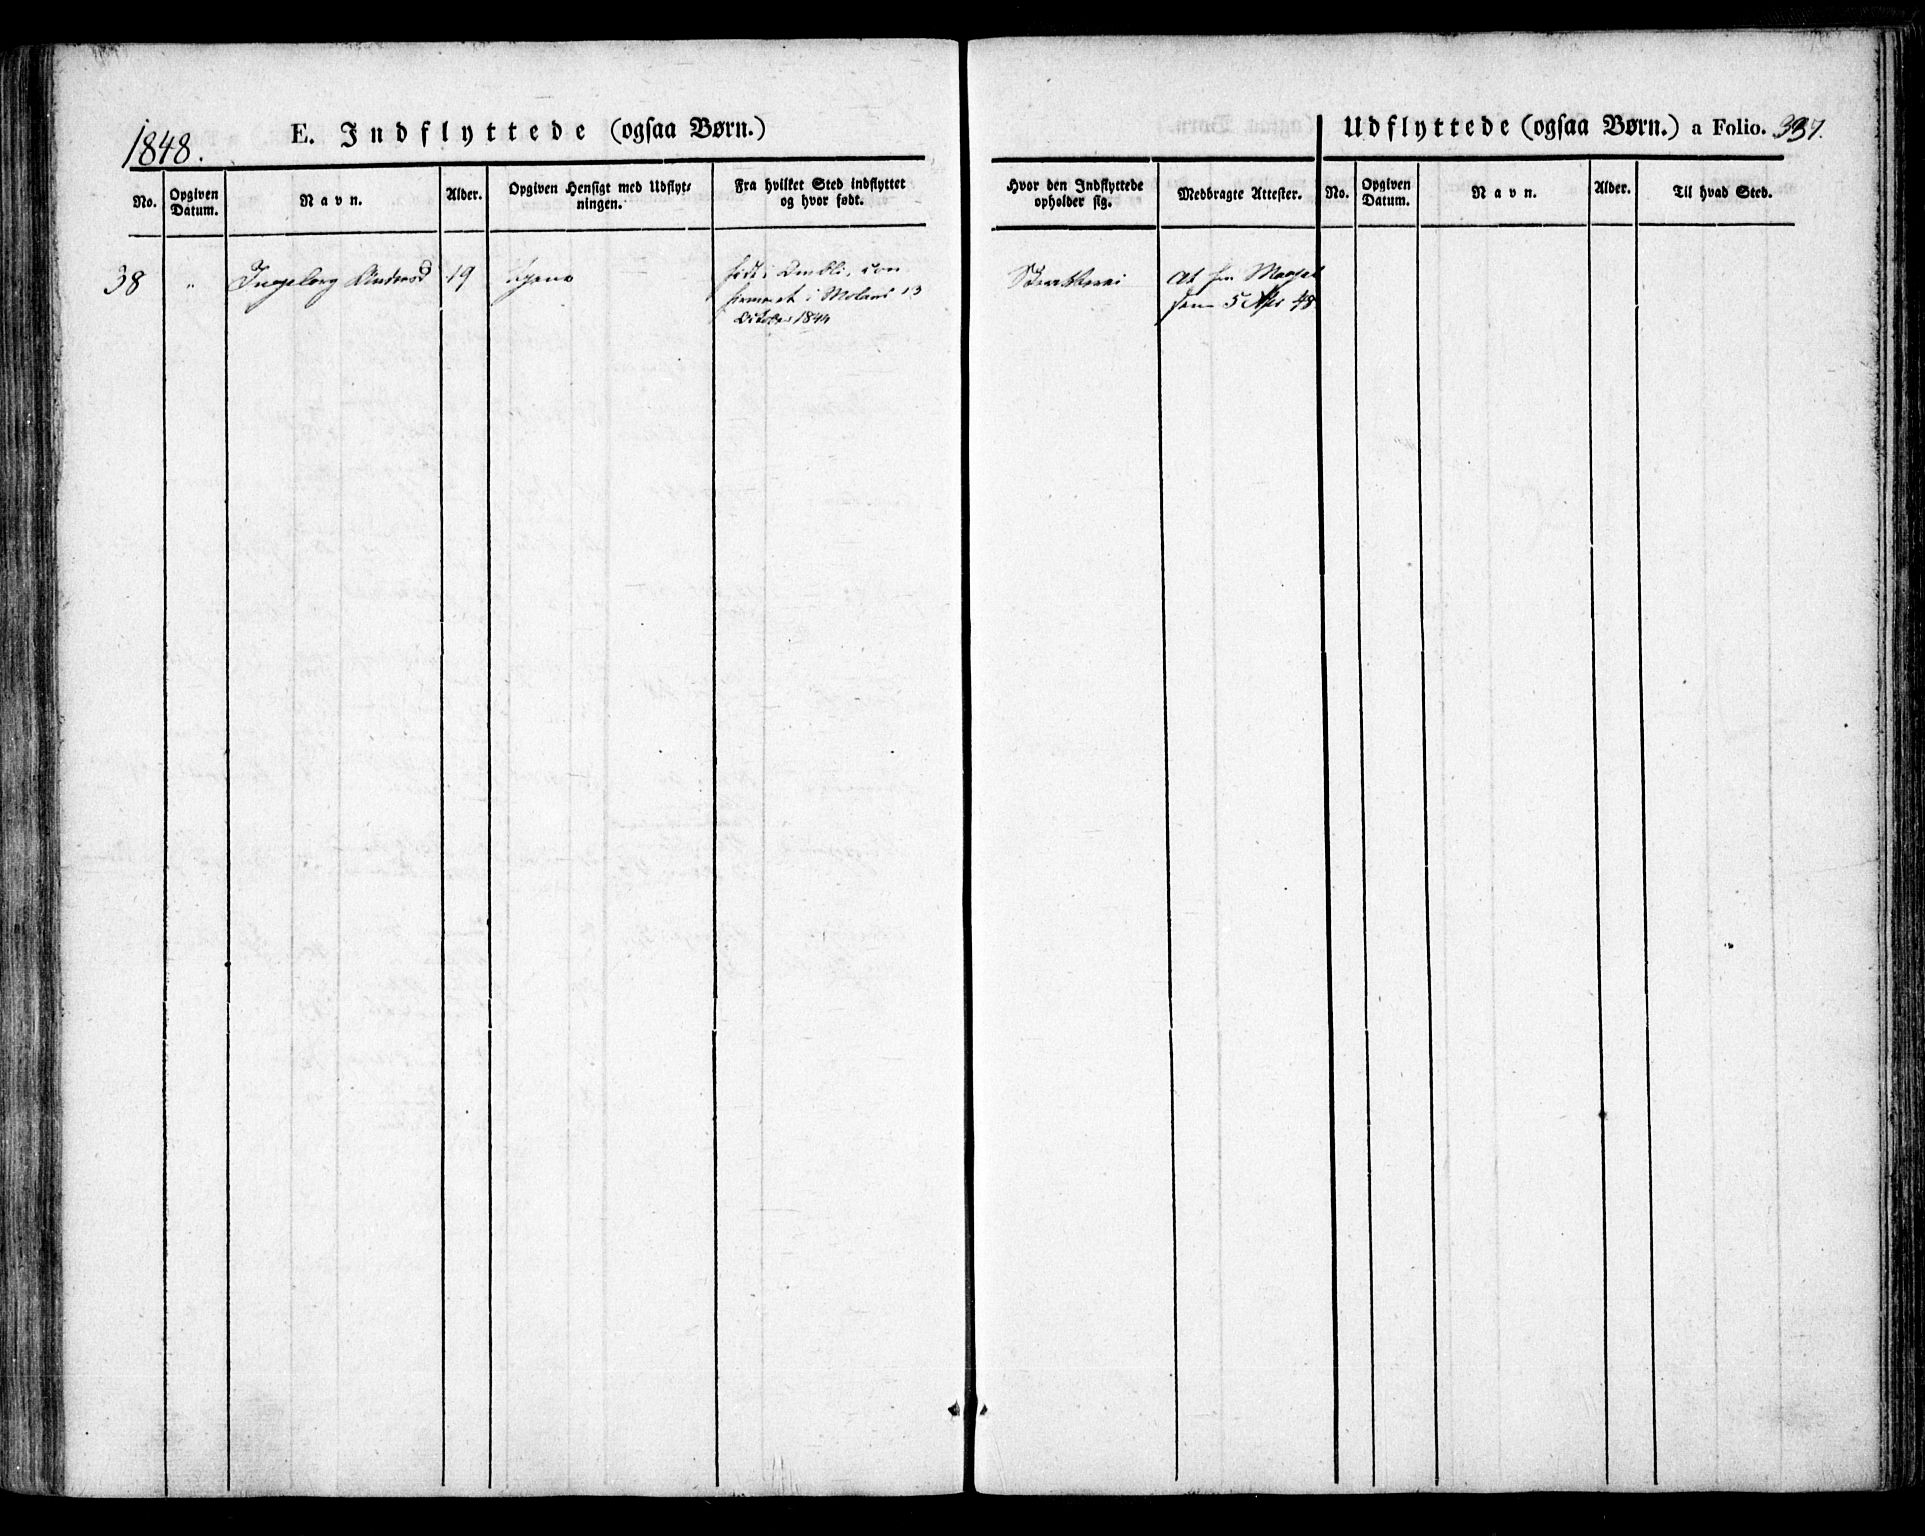 1848.
E. Indflyttede (ogsaa Børn.)
No.
Opgiven Datum.
Navn.
Alder.
Opgiven Hensigt med Udflyt-
ningen.
Fra hvilket Sted indflyttet
og hvor født.
38
"
Ingeborg Andersd
19
tjene
født i Ombli, con
firmeret i Moland 13
October 1844
Udflyttede (ogsaa Børn.) a Folio. 337.
Hvor den Indflyttede
opholder sig.
Medbragte Attester.
No.
Opgiven
Datum.
Navn.
Alder.
Til hvad Sted.
At fra
5 Apr 48